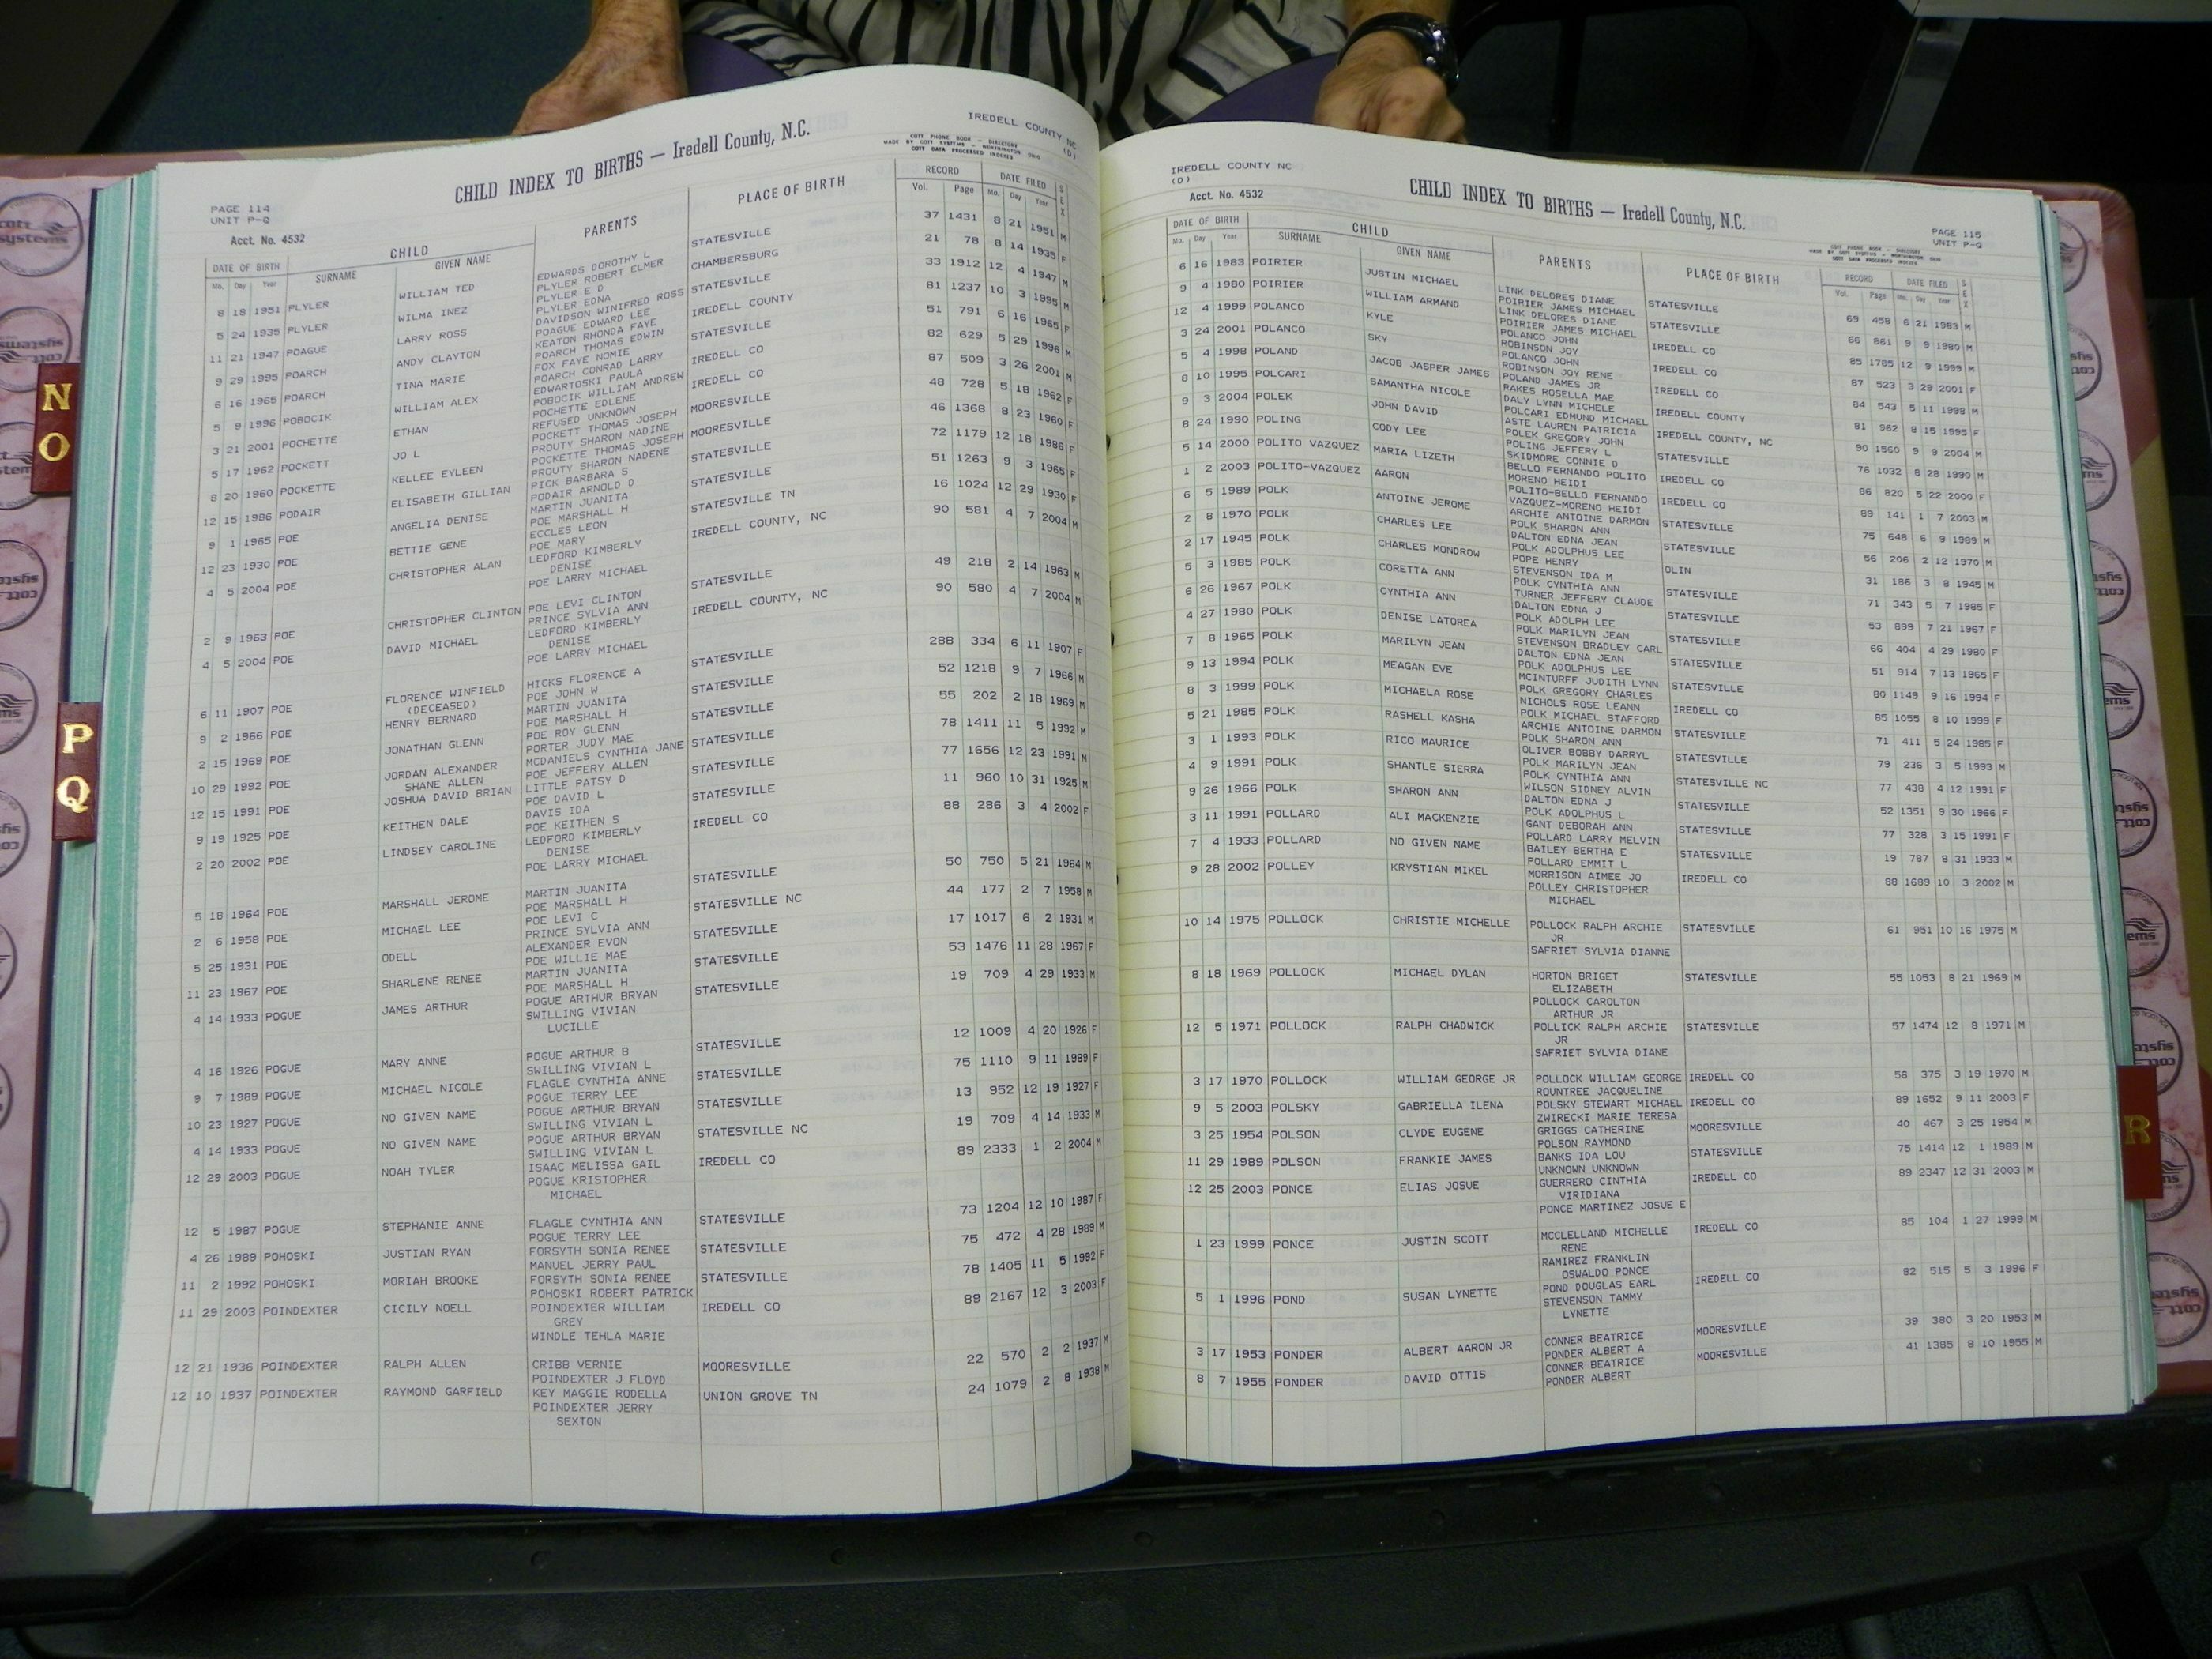 IREDELL COUNTY NC
(D)
PAGE 114
UNIT P-Q
CHILD INDEX TO BIRTHS — Iredell County, N.C.
COTT PHONE BOOK - DIRECTORY
MADE BY COTT SYSTEMS - WORTHINGTON OHIO
COTT DATA PROCESSED INDEXES
Acct. No. 4532
DATE OF BIRTH CHILD PARENTS PLACE OF BIRTH RECORD DATE FILED SEX
Mo. Day Year SURNAME GIVEN NAME Vol. Page Mo. Day Year
8 18 1951 PLYLER WILLIAM TED EDWARDS DOROTHY L STATESVILLE 37 1431 8 21 1951 M
PLYLER ROBERT ELMER
5 24 1935 PLYLER WILMA INEZ PLYLER E D CHAMBERSBURG 21 78 8 14 1935 F
PLYLER EDNA
11 21 1947 POAGUE LARRY ROSS DAVIDSON WINIFRED ROSS STATESVILLE 33 1912 12 4 1947 M
POAGUE EDWARD LEE
9 29 1995 POARCH ANDY CLAYTON KEATON RHONDA FAYE IREDELL COUNTY 81 1237 10 3 1995 M
POARCH THOMAS EDWIN
6 16 1965 POARCH TINA MARIE FOX FAYE NOMIE STATESVILLE 51 791 6 16 1965 F
POARCH CONRAD LARRY
5 9 1996 POBOCIK WILLIAM ALEX EDWARTOSKI PAULA IREDELL CO 82 629 5 29 1996 M
POBOCIK WILLIAM ANDREW
3 21 2001 POCHETTE ETHAN POCHETTE EDLENE IREDELL CO 87 509 3 26 2001 M
REFUSED UNKNOWN
5 17 1962 POCKETT JO L POCKETT THOMAS JOSEPH MOORESVILLE 48 728 5 18 1962 F
PROUTY SHARON NADINE
8 20 1960 POCKETTE KELLEE EYLEEN POCKETTE THOMAS JOSEPH MOORESVILLE 46 1368 8 23 1960 F
PROUTY SHARON NADENE
12 15 1986 PODAIR ELISABETH GILLIAN PICK BARBARA S STATESVILLE 72 1179 12 18 1986 F
PODAIR ARNOLD D
9 1 1965 POE ANGELIA DENISE MARTIN JUANITA STATESVILLE 51 1263 9 3 1965 F
POE MARSHALL H
12 23 1930 POE BETTIE GENE ECCLES LEON STATESVILLE TN 16 1024 12 29 1930 F
POE MARY
4 5 2004 POE CHRISTOPHER ALAN LEDFORD KIMBERLY IREDELL COUNTY, NC 90 581 4 7 2004 M
DENISE
POE LARRY MICHAEL
2 9 1963 POE CHRISTOPHER CLINTON POE LEVI CLINTON STATESVILLE 49 218 2 14 1963 M
PRINCE SYLVIA ANN
4 5 2004 POE DAVID MICHAEL LEDFORD KIMBERLY IREDELL COUNTY, NC 90 580 4 7 2004 M
DENISE
POE LARRY MICHAEL
6 11 1907 POE FLORENCE WINFIELD HICKS FLORENCE A STATESVILLE 288 334 6 11 1907 F
(DECEASED) POE JOHN W
9 2 1966 POE HENRY BERNARD MARTIN JUANITA STATESVILLE 52 1218 9 7 1966 M
POE MARSHALL H
2 15 1969 POE JONATHAN GLENN POE ROY GLENN STATESVILLE 55 202 2 18 1969 M
PORTER JUDY MAE
10 29 1992 POE JORDAN ALEXANDER MCDANIELS CYNTHIA JANE STATESVILLE 78 1411 11 5 1992 M
SHANE ALLEN POE JEFFERY ALLEN
12 15 1991 POE JOSHUA DAVID BRIAN LITTLE PATSY D STATESVILLE 77 1656 12 23 1991 M
POE DAVID L
9 19 1925 POE KEITHEN DALE DAVIS IDA STATESVILLE 11 960 10 31 1925 M
POE KEITHEN S
2 20 2002 POE LINDSEY CAROLINE LEDFORD KIMBERLY IREDELL CO 88 286 3 4 2002 F
DENISE
POE LARRY MICHAEL
5 18 1964 POE MARSHALL JEROME MARTIN JUANITA STATESVILLE 50 750 5 21 1964 M
POE MARSHALL H
2 6 1958 POE MICHAEL LEE POE LEVI C STATESVILLE NC 44 177 2 7 1958 M
PRINCE SYLVIA ANN
5 25 1931 POE ODELL ALEXANDER EVON STATESVILLE 17 1017 6 2 1931 M
POE WILLIE MAE
11 23 1967 POE SHARLENE RENEE MARTIN JUANITA STATESVILLE 53 1476 11 28 1967 F
POE MARSHALL H
4 14 1933 POGUE JAMES ARTHUR POGUE ARTHUR BRYAN STATESVILLE 19 709 4 29 1933 M
SWILLING VIVIAN
LUCILLE
4 16 1926 POGUE MARY ANNE POGUE ARTHUR B STATESVILLE 12 1009 4 20 1926 F
SWILLING VIVIAN L
9 7 1989 POGUE MICHAEL NICOLE FLAGLE CYNTHIA ANNE STATESVILLE 75 1110 9 11 1989 F
POGUE TERRY LEE
10 23 1927 POGUE NO GIVEN NAME POGUE ARTHUR BRYAN STATESVILLE 13 952 12 19 1927 F
SWILLING VIVIAN L
4 14 1933 POGUE NO GIVEN NAME POGUE ARTHUR BRYAN STATESVILLE NC 19 709 4 14 1933 M
SWILLING VIVIAN L
12 29 2003 POGUE NOAH TYLER ISAAC MELISSA GAIL IREDELL CO 89 2333 1 2 2004 M
POGUE KRISTOPHER
MICHAEL
12 5 1987 POGUE STEPHANIE ANNE FLAGLE CYNTHIA ANN STATESVILLE 73 1204 12 10 1987 F
POGUE TERRY LEE
4 26 1989 POHOSKI JUSTIAN RYAN FORSYTH SONIA RENEE STATESVILLE 75 472 4 28 1989 M
MANUEL JERRY PAUL
11 2 1992 POHOSKI MORIAH BROOKE FORSYTH SONIA RENEE STATESVILLE 78 1405 11 5 1992 F
POHOSKI ROBERT PATRICK
11 29 2003 POINDEXTER CICILY NOELL POINDEXTER WILLIAM IREDELL CO 89 2167 12 3 2003 F
GREY
WINDLE TEHLA MARIE
12 21 1936 POINDEXTER RALPH ALLEN CRIBB VERNIE MOORESVILLE 22 570 2 2 1937 M
POINDEXTER J FLOYD
12 10 1937 POINDEXTER RAYMOND GARFIELD KEY MAGGIE RODELLA UNION GROVE TN 24 1079 2 8 1938 M
POINDEXTER JERRY
SEXTON
IREDELL COUNTY NC
(D)
Acct. No. 4532
CHILD INDEX TO BIRTHS — Iredell County, N.C.
PAGE 115
UNIT P-Q
COTT PHONE BOOK - DIRECTORY
MADE BY COTT SYSTEMS - WORTHINGTON OHIO
COTT DATA PROCESSED INDEXES
DATE OF BIRTH CHILD PARENTS PLACE OF BIRTH RECORD DATE FILED SEX
Mo. Day Year SURNAME GIVEN NAME Vol. Page Mo. Day Year
6 16 1983 POIRIER JUSTIN MICHAEL LINK DELORES DIANE STATESVILLE 69 458 6 21 1983 M
POIRIER JAMES MICHAEL
9 4 1980 POIRIER WILLIAM ARMAND LINK DELORES DIANE STATESVILLE 66 861 9 9 1980 M
POIRIER JAMES MICHAEL
12 4 1999 POLANCO KYLE POLANCO JOHN IREDELL CO 85 1785 12 9 1999 M
ROBINSON JOY
3 24 2001 POLANCO SKY POLANCO JOHN IREDELL CO 87 523 3 29 2001 F
ROBINSON JOY RENE
5 4 1998 POLAND JACOB JASPER JAMES POLAND JAMES JR IREDELL CO 84 543 5 11 1998 M
RAKES ROSELLA MAE
8 10 1995 POLCARI SAMANTHA NICOLE DALY LYNN MICHELE IREDELL COUNTY 81 962 8 15 1995 F
POLCARI EDMUND MICHAEL
9 3 2004 POLEK JOHN DAVID ASTE LAUREN PATRICIA IREDELL COUNTY, NC 90 1560 9 9 2004 M
POLEK GREGORY JOHN
8 24 1990 POLING CODY LEE POLING JEFFERY L STATESVILLE 76 1032 8 28 1990 M
SKIDMORE CONNIE D
5 14 2000 POLITO VAZQUEZ MARIA LIZETH BELLO FERNANDO POLITO IREDELL CO 86 820 5 22 2000 F
MORENO HEIDI
1 2 2003 POLITO-VAZQUEZ AARON POLITO-BELLO FERNANDO IREDELL CO 89 141 1 7 2003 M
VAZQUEZ-MORENO HEIDI
6 5 1989 POLK ANTOINE JEROME ARCHIE ANTOINE DARMON STATESVILLE 75 648 6 9 1989 M
POLK SHARON ANN
2 8 1970 POLK CHARLES LEE DALTON EDNA JEAN STATESVILLE 56 206 2 12 1970 M
POLK ADOLPHUS LEE
2 17 1945 POLK CHARLES MONDROW POPE HENRY OLIN 31 186 3 8 1945 M
STEVENSON IDA M
5 3 1985 POLK CORETTA ANN POLK CYNTHIA ANN STATESVILLE 71 343 5 7 1985 F
TURNER JEFFERY CLAUDE
6 26 1967 POLK CYNTHIA ANN DALTON EDNA J STATESVILLE 53 899 7 21 1967 F
POLK ADOLPH LEE
4 27 1980 POLK DENISE LATOREA POLK MARILYN JEAN STATESVILLE 66 404 4 29 1980 F
STEVENSON BRADLEY CARL
7 8 1965 POLK MARILYN JEAN DALTON EDNA JEAN STATESVILLE 51 914 7 13 1965 F
POLK ADOLPHUS LEE
9 13 1994 POLK MEAGAN EVE MCINTURFF JUDITH LYNN STATESVILLE 80 1149 9 16 1994 F
POLK GREGORY CHARLES
8 3 1999 POLK MICHAELA ROSE NICHOLS ROSE LEANN IREDELL CO 85 1055 8 10 1999 F
POLK MICHAEL STAFFORD
5 21 1985 POLK RASHELL KASHA ARCHIE ANTOINE DARMON STATESVILLE 71 411 5 24 1985 F
POLK SHARON ANN
3 1 1993 POLK RICO MAURICE OLIVER BOBBY DARRYL STATESVILLE 79 236 3 5 1993 M
POLK MARILYN JEAN
4 9 1991 POLK SHANTLE SIERRA POLK CYNTHIA ANN STATESVILLE NC 77 438 4 12 1991 F
WILSON SIDNEY ALVIN
9 26 1966 POLK SHARON ANN DALTON EDNA J STATESVILLE 52 1351 9 30 1966 F
POLK ADOLPHUS L
3 11 1991 POLLARD ALI MACKENZIE GANT DEBORAH ANN STATESVILLE 77 328 3 15 1991 F
POLLARD LARRY MELVIN
7 4 1933 POLLARD NO GIVEN NAME BAILEY BERTHA E STATESVILLE 19 787 8 31 1933 M
POLLARD EMMIT L
9 28 2002 POLLEY KRYSTIAN MIKEL MORRISON AIMEE JO IREDELL CO 88 1689 10 3 2002 M
POLLEY CHRISTOPHER
MICHAEL
10 14 1975 POLLOCK CHRISTIE MICHELLE POLLOCK RALPH ARCHIE STATESVILLE 61 951 10 16 1975 M
JR
SAFRIET SYLVIA DIANNE
8 18 1969 POLLOCK MICHAEL DYLAN HORTON BRIGET STATESVILLE 55 1053 8 21 1969 M
ELIZABETH
POLLOCK CAROLTON
ARTHUR JR
12 5 1971 POLLOCK RALPH CHADWICK POLLICK RALPH ARCHIE STATESVILLE 57 1474 12 8 1971 M
JR
SAFRIET SYLVIA DIANE
3 17 1970 POLLOCK WILLIAM GEORGE JR POLLOCK WILLIAM GEORGE IREDELL CO 56 375 3 19 1970 M
ROUNTREE JACQUELINE
9 5 2003 POLSKY GABRIELLA ILENA POLSKY STEWART MICHAEL IREDELL CO 89 1652 9 11 2003 F
ZWIRECKI MARIE TERESA
3 25 1954 POLSON CLYDE EUGENE GRIGGS CATHERINE MOORESVILLE 40 467 3 25 1954 M
POLSON RAYMOND
11 29 1989 POLSON FRANKIE JAMES BANKS IDA LOU STATESVILLE 75 1414 12 1 1989 M
UNKNOWN UNKNOWN
12 25 2003 PONCE ELIAS JOSUE GUERRERO CINTHIA IREDELL CO 89 2347 12 31 2003 M
VIRIDIANA
PONCE MARTINEZ JOSUE E
1 23 1999 PONCE JUSTIN SCOTT MCCLELLAND MICHELLE IREDELL CO 85 104 1 27 1999 M
RENE
RAMIREZ FRANKLIN
OSWALDO PONCE
5 1 1996 POND SUSAN LYNETTE POND DOUGLAS EARL IREDELL CO 82 515 5 3 1996 F
STEVENSON TAMMY
LYNETTE
3 17 1953 PONDER ALBERT AARON JR CONNER BEATRICE MOORESVILLE 39 380 3 20 1953 M
PONDER ALBERT A
8 7 1955 PONDER DAVID OTTIS CONNER BEATRICE MOORESVILLE 41 1385 8 10 1955 M
PONDER ALBERT
N
O
P
Q
R
cott
systems